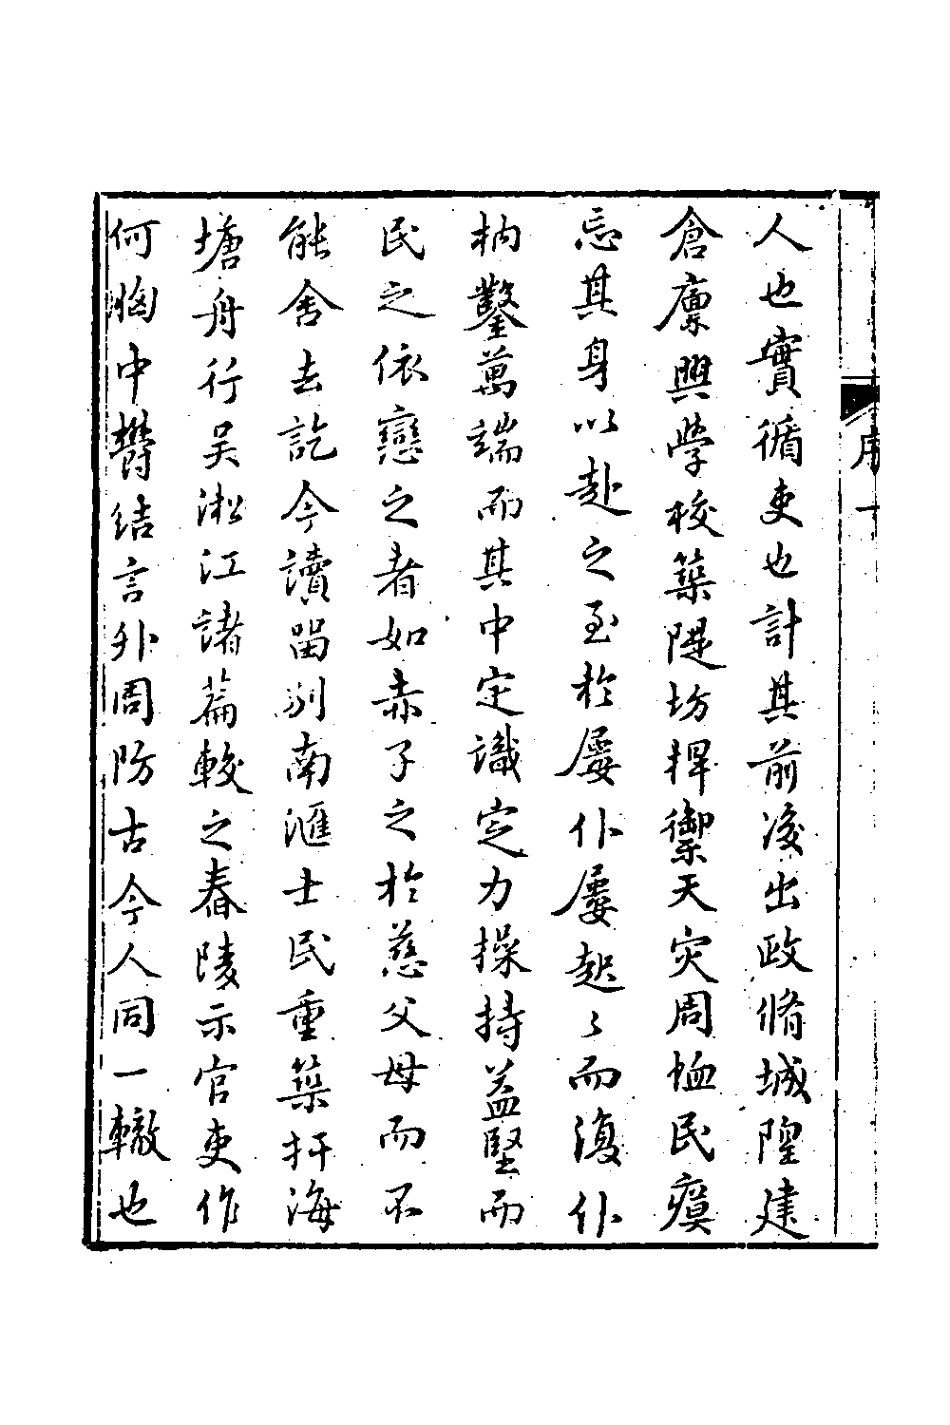 人也實循吏也計其前後出政脩城隍建
倉廪興學校築隄坊捍禦天灾周恤民瘼
忘其身以赴之至於屢仆屢起〻而復仆
枘鑿萬端而其中定識定力操持益堅而
民之依戀之者如赤子之於慈父母而不
能舍去訖今讀留别南滙士民重築捍海
塘舟行吴淞江諸篇較之舂陵示官吏作
何胸中欝结言外周防古今人同一轍也
序